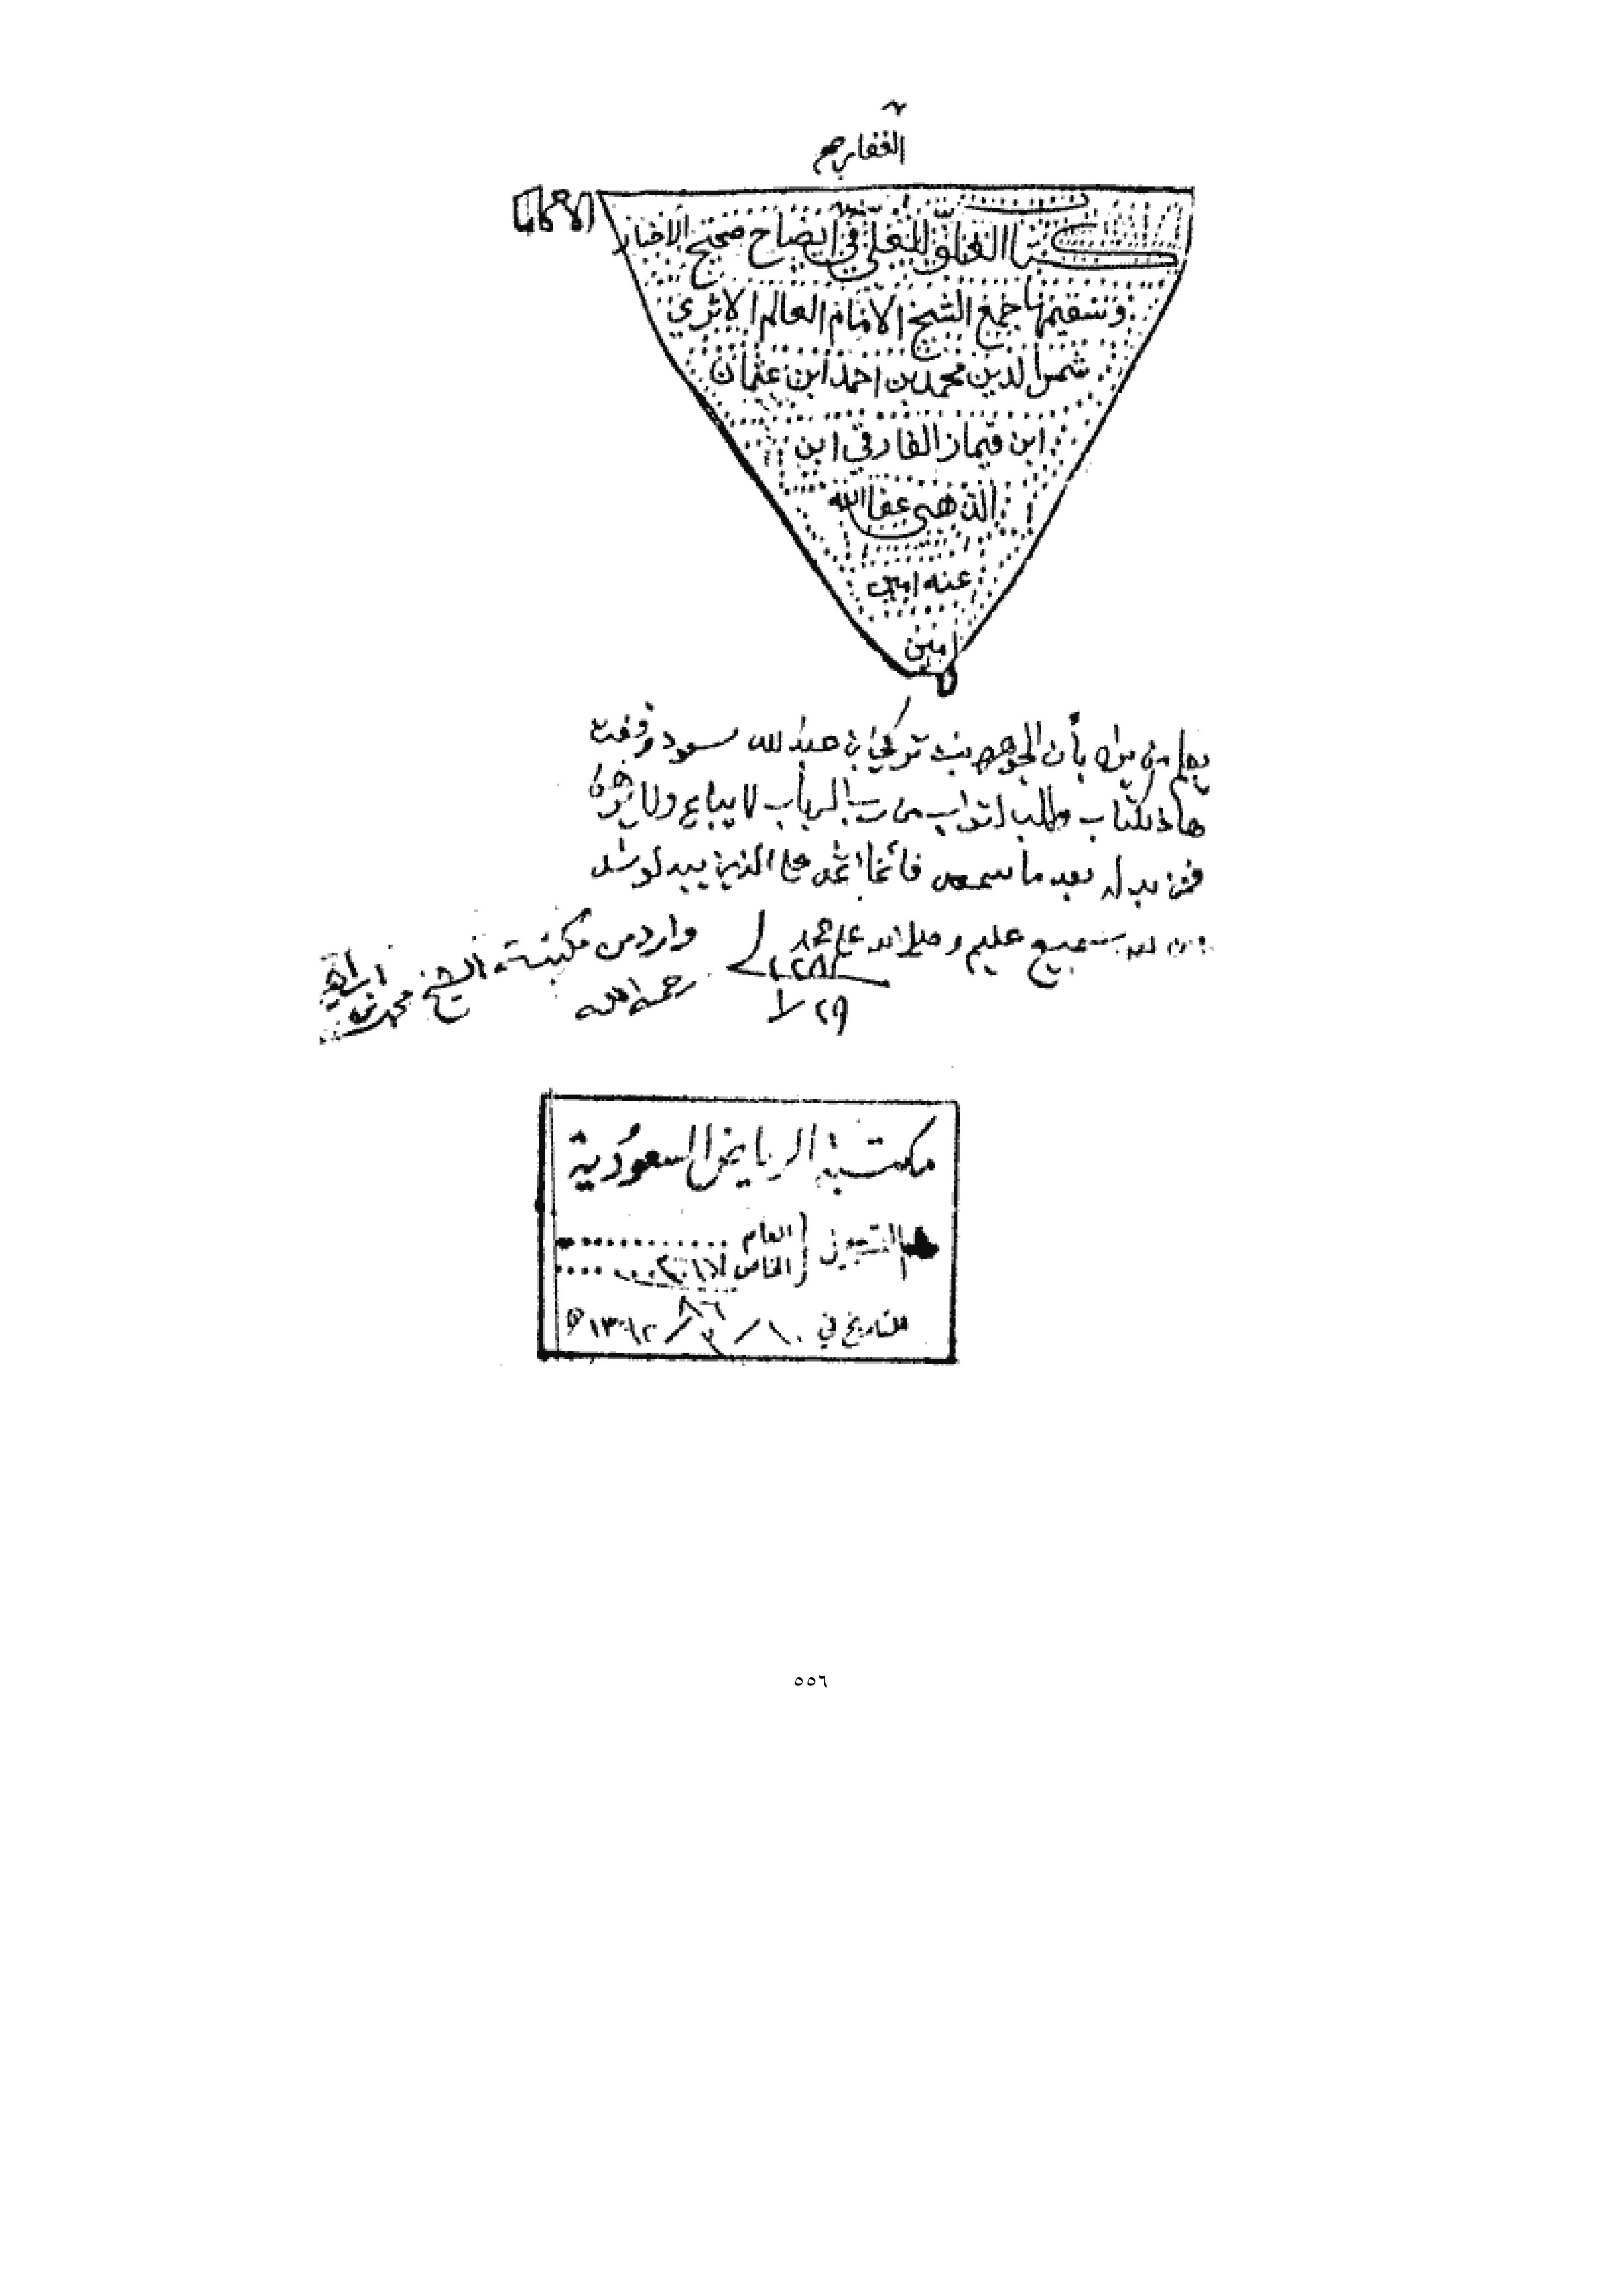 الغفار جم
كتاب العلو للعلي في ايضاح صحيح الاخبار
وسقيمها جمع الشيخ الامام العالم الاثري
شمس الدين محمد بن احمد ابن عثمان
ابن قيماز الفارقي ابن
الذهبي عفا الله
عنه امين
امين
يعلم من يراه بأن الجوهره بنت تركي بن عبد لله سعود وقفت
هاذ لكتاب وطلب لثواب من رب الرباب لا يباع ولا
فمن بدله بعد ما سمعه فأنما اثمه علا الذين يبدلونه
سميع عليم وصلى الله على محمد
وارد من مكتبة الشيخ محمد بن ابراهيم
رحمه الله
مكتبة الرياض السعودية
التسجيل العام
الخاص
٨٦
التاريخ في ١٠ / ٧ / ١٣٩٢ ه
٥٥٦